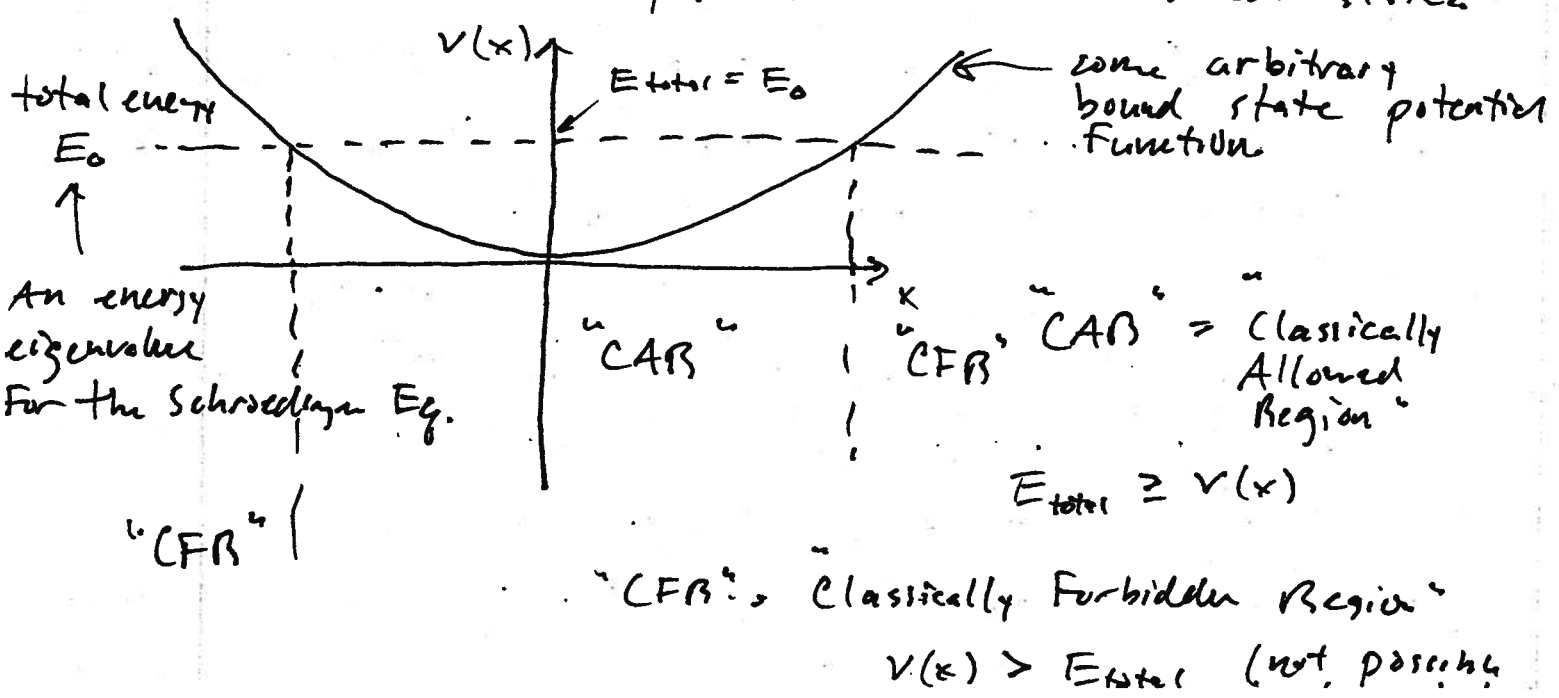 V(x)
E total = E₀
total energy
E₀
some arbitrary
bound state potential
Function.
An energy
eigenvalue
For the Schroedinger Eq.
x
"CAR"
"CFR"
"CAR" = "Classically
Allowed
Region"
E total ≥ V(x)
"CFR"
"CFR" = "Classically Forbidden Region"
V(x) > E total (not possible